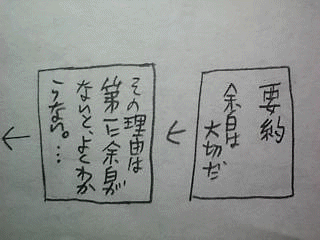 要約
余白は
大切だ
その理由は
第一に余白が
ないと、よくわか
らない。…